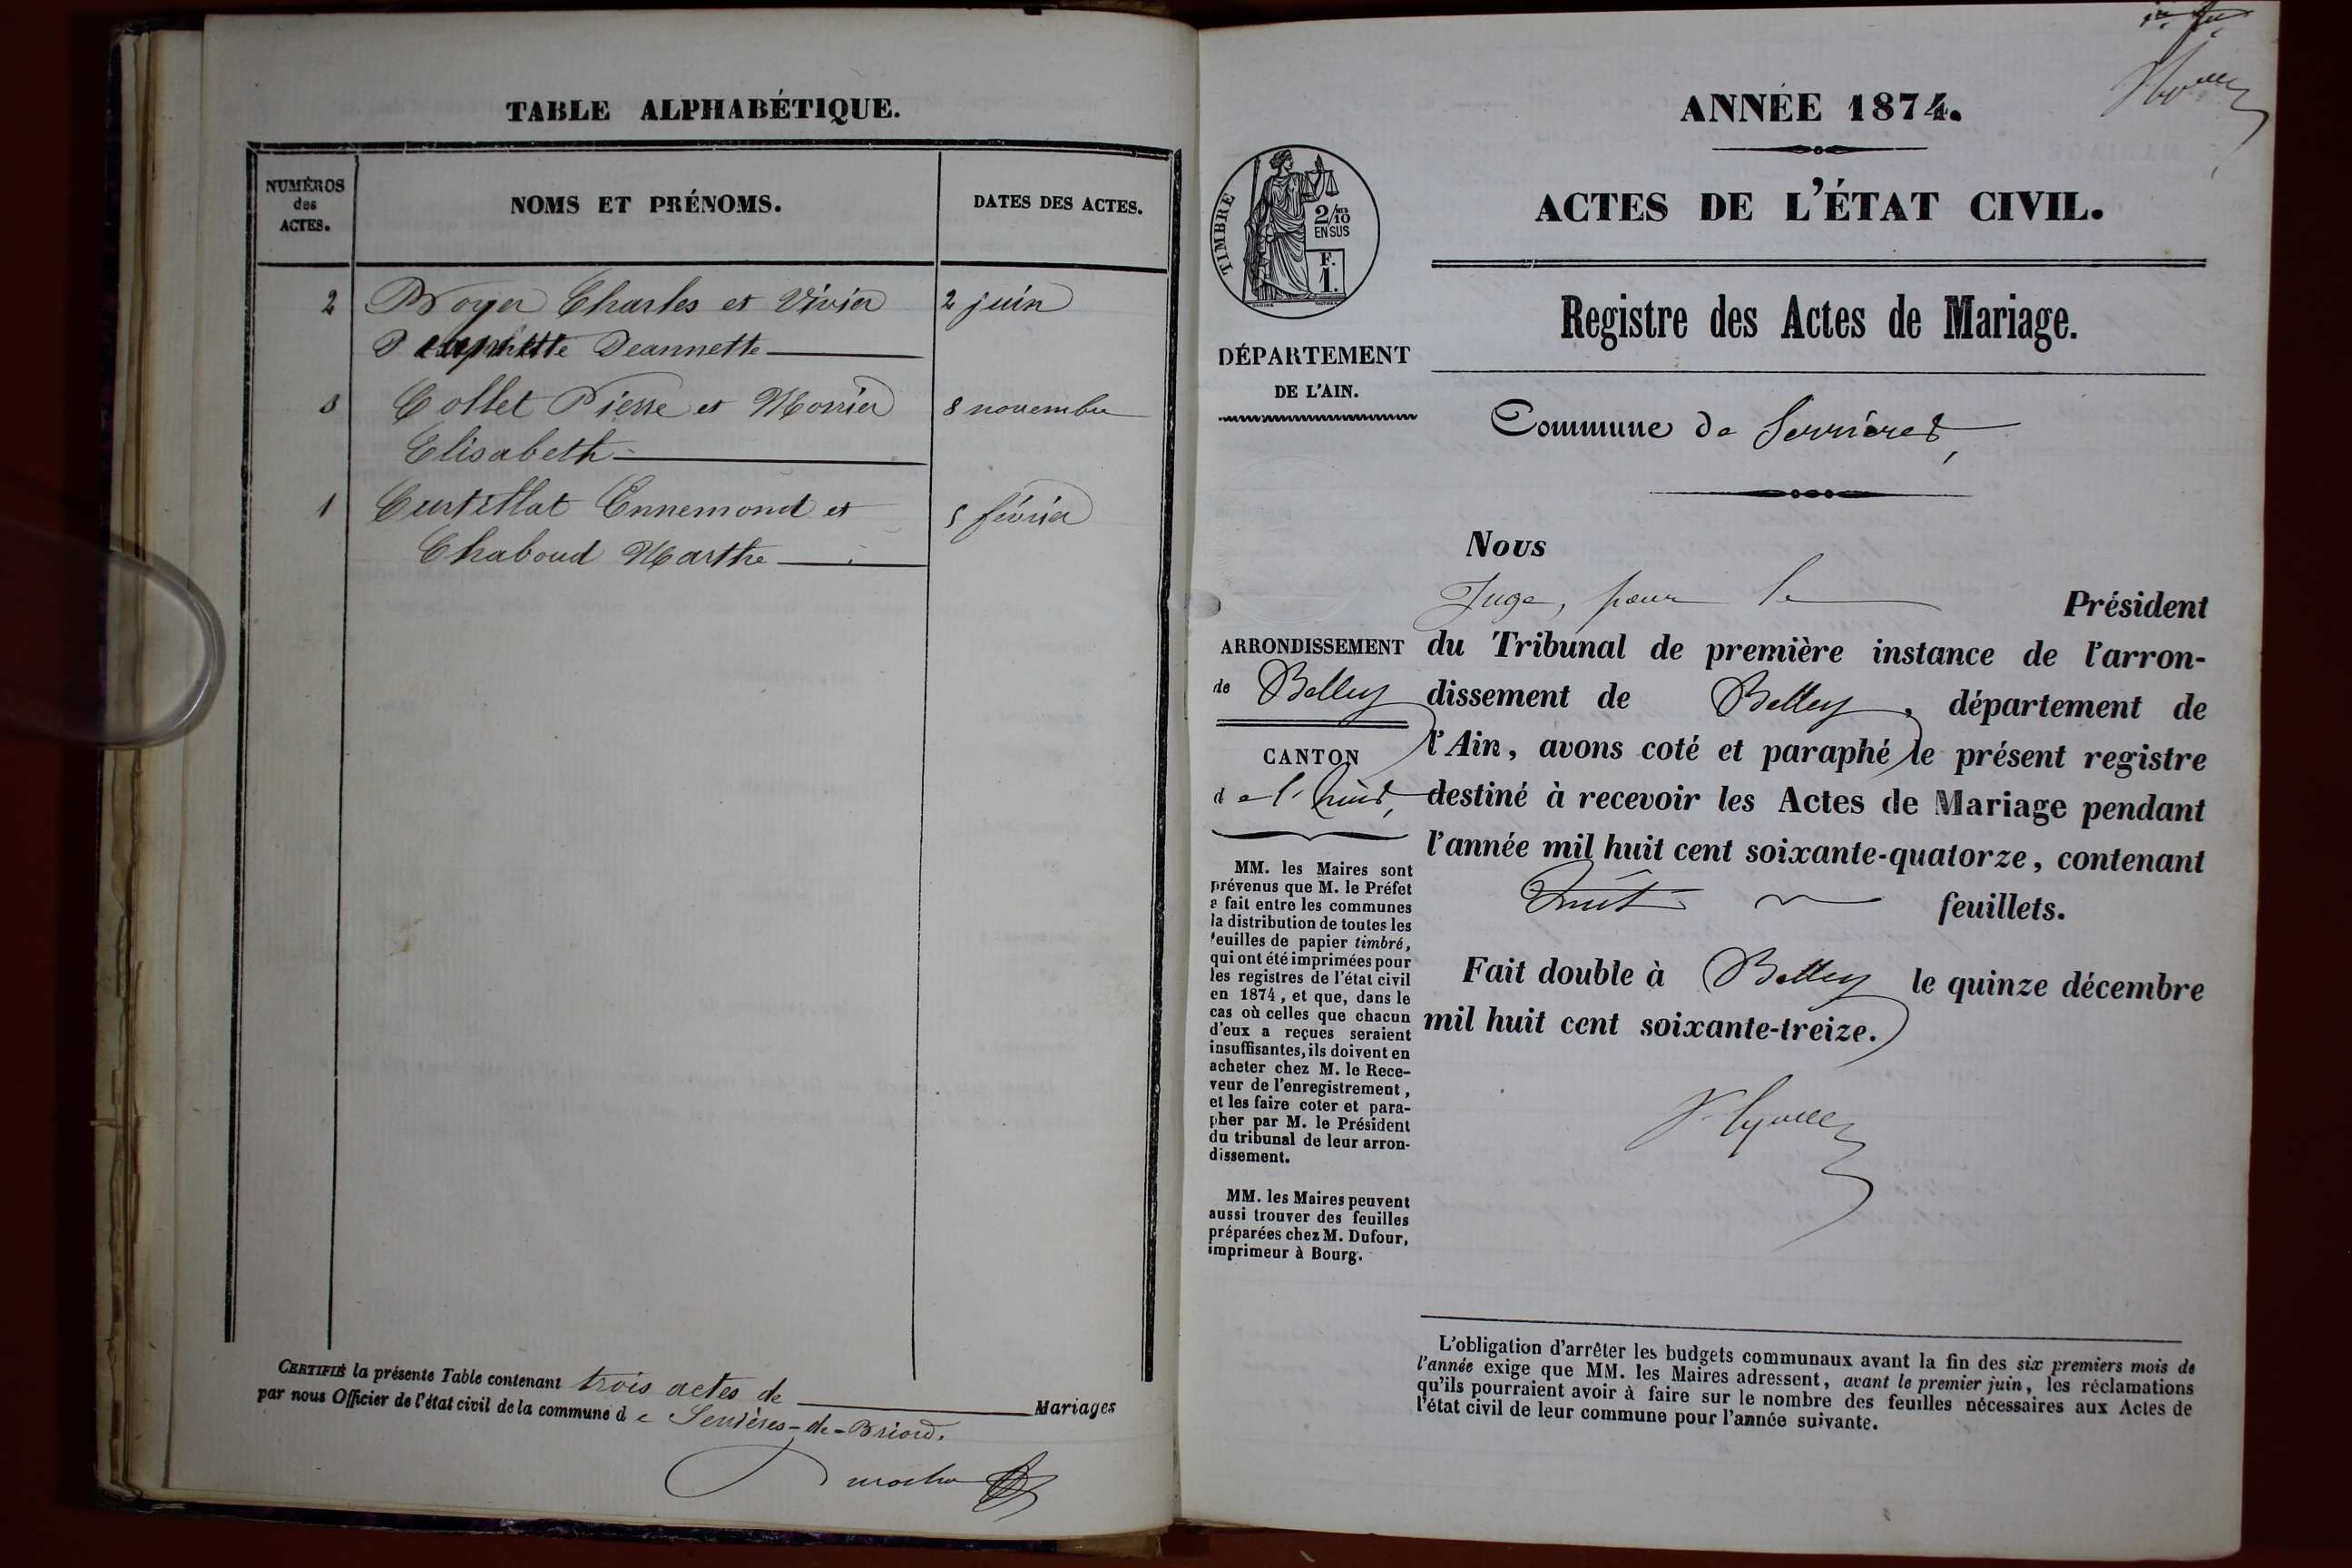 TABLE ALPHABÉTIQUE.
NUMÉROS
des
ACTES.
NOMS ET PRÉNOMS.
DATES DES ACTES.
2 Royer Charles et Vivier 2 juin
Jeannette
3 Collet Pierre et Morrier 8 novembre
Elisabeth
1 Curtillat Ennemond et 5 février
Chaboud Marthe
CERTIFIÉ la présente Table contenant trois actes de Mariages
par nous Officier de l'état civil de la commune de Serrières-de-Briord.
ANNÉE 1874.
ACTES DE L'ÉTAT CIVIL.
Registre des Actes de Mariage.
TIMBRE
2/10
EN SUS
F.
1.
DÉPARTEMENT
DE L'AIN.
Commune de Serrières,
Nous
Juge, pour le Président
du Tribunal de première instance de l'arron-
dissement de Belley, département de
l'Ain, avons coté et paraphé le présent registre
destiné à recevoir les Actes de Mariage pendant
l'année mil huit cent soixante-quatorze, contenant
huit feuillets.
Fait double à Belley le quinze décembre
mil huit cent soixante-treize.
ARRONDISSEMENT
de Belley
CANTON
de l'huis,
MM. les Maires sont
prévenus que M. le Préfet
a fait entre les communes
la distribution de toutes les
feuilles de papier timbré,
qui ont été imprimées pour
les registres de l'état civil
en 1874, et que, dans le
cas où celles que chacun
d'eux a reçues seraient
insuffisantes, ils doivent en
acheter chez M. le Rece-
veur de l'enregistrement,
et les faire coter et para-
pher par M. le Président
du tribunal de leur arron-
dissement.
MM. les Maires peuvent
aussi trouver des feuilles
préparées chez M. Dufour,
imprimeur à Bourg.
L'obligation d'arrêter les budgets communaux avant la fin des six premiers mois de
l'année exige que MM. les Maires adressent, avant le premier juin, les réclamations
qu'ils pourraient avoir à faire sur le nombre des feuilles nécessaires aux Actes de
l'état civil de leur commune pour l'année suivante.